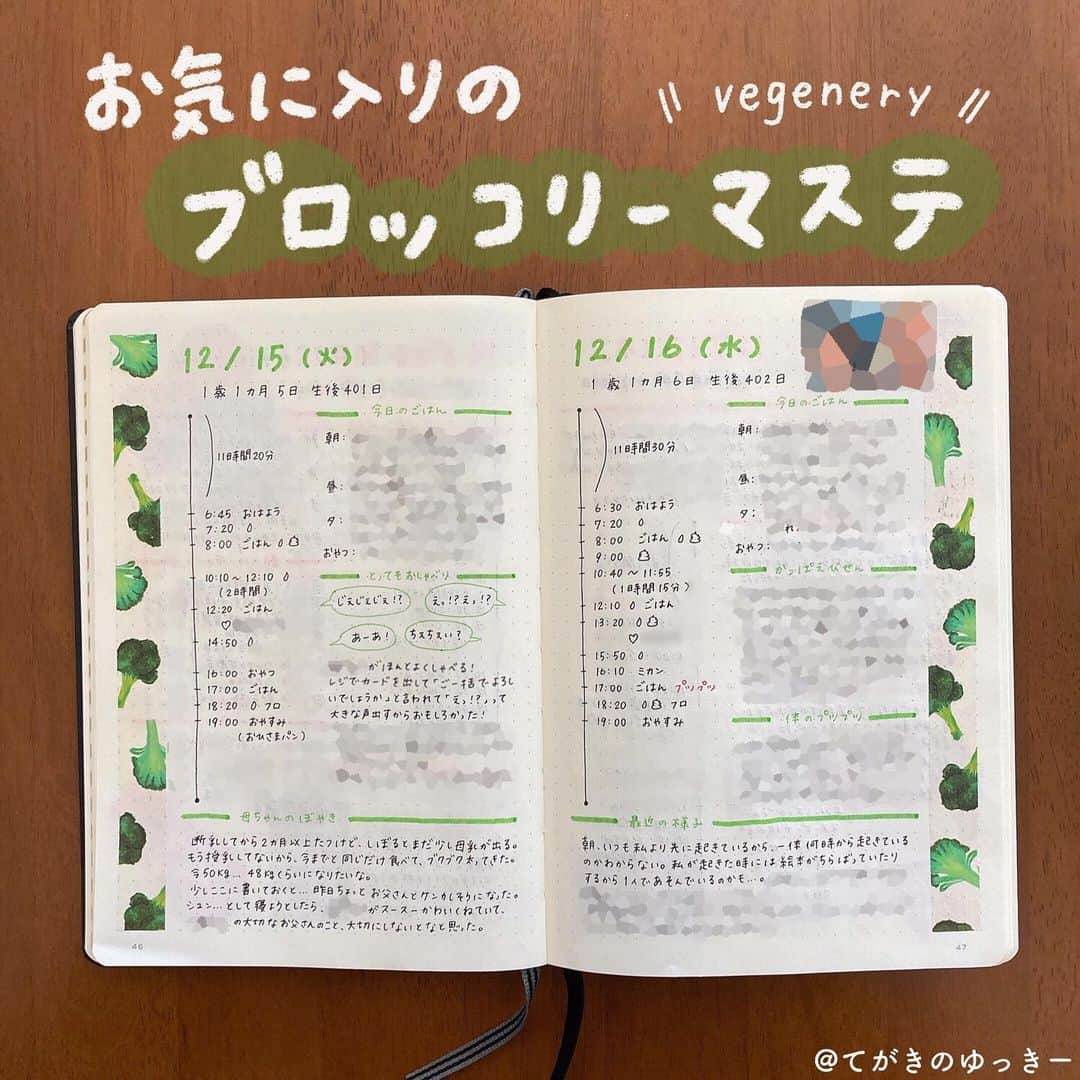 お気に入りの
vegenery
ブロッコリーマステ
12/15(火)
1歳1カ月5日 生後401日
11時間20分
6:45 おはよう
7:20
8:00 ごはん
10:10〜12:10
(2時間)
12:20 ごはん
♡
14:50
16:00 おやつ
17:00 ごはん
18:20 フロ
19:00 おやすみ
(おひさまパン)
今日のごはん
朝:
昼:
夕:
おやつ:
とってもおしゃべり
じぇじぇじぇ!?
えっ!?えっ!?
あーあ!
ちぇちぇい?
がほんとよくしゃべる!
レジでカードを出して「ご一括でよろし
いでしょうか」と言われて「えっ!?」って
大きな声出すからおもしろかった!
母ちゃんのぼやき
断乳してから2カ月以上たつけど、しぼるとまだ少し母乳が出る。
もう授乳してないから、今までと同じだけ食べて、ブクブク太ってきた。
今50kg… 48kgくらいになりたいな。
少しここに書いておくと…昨日ちょっとお父さんとケンカしそうになった。
シュン…として寝ようとしたら、 がスースーかわいくねていて、
の大切なお父さんのこと、大切にしないとなと思った。
46
12/16(水)
1歳1カ月6日 生後402日
11時間30分
6:30 おはよう
7:20
8:00 ごはん
9:00
10:40〜11:55
(1時間15分)
12:10 ごはん
13:20
♡
15:50
16:10 ミカン
17:00 ごはん プツプツ
18:20 フロ
19:00 おやすみ
今日のごはん
朝:
昼:
夕:
れ.
おやつ:
かっぱえびせん
体のプツプツ
最近の様子
朝、いつも私より先に起きているから、一体何時から起きている
のかわからない。私が起きた時には絵本がちらばっていたり
するから1人であそんでいるのかも…。
47
@てがきのゆっきー